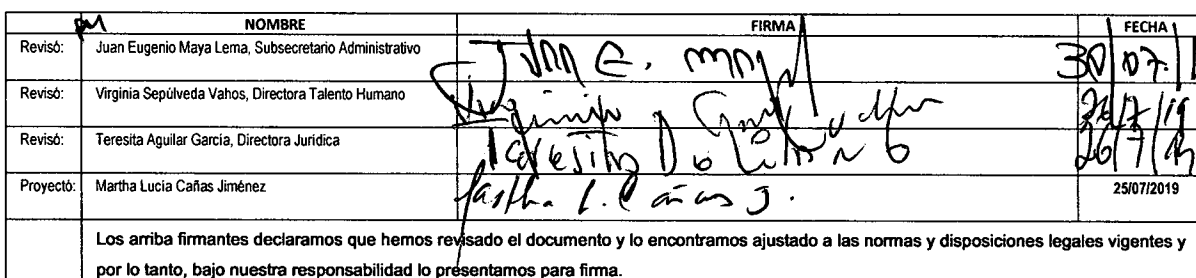 NOMBRE FIRMA FECHA
Revisó: Juan Eugenio Maya Lema, Subsecretario Administrativo Juan E. May 30/07/1
Revisó: Virginia Sepúlveda Vahos, Directora Talento Humano Virginia /7/19
Revisó: Teresita Aguilar García, Directora Jurídica Teresita 26/7/19
Proyectó: Martha Lucía Cañas Jiménez Martha L. Cañas J. 25/07/2019
Los arriba firmantes declaramos que hemos revisado el documento y lo encontramos ajustado a las normas y disposiciones legales vigentes y
por lo tanto, bajo nuestra responsabilidad lo presentamos para firma.